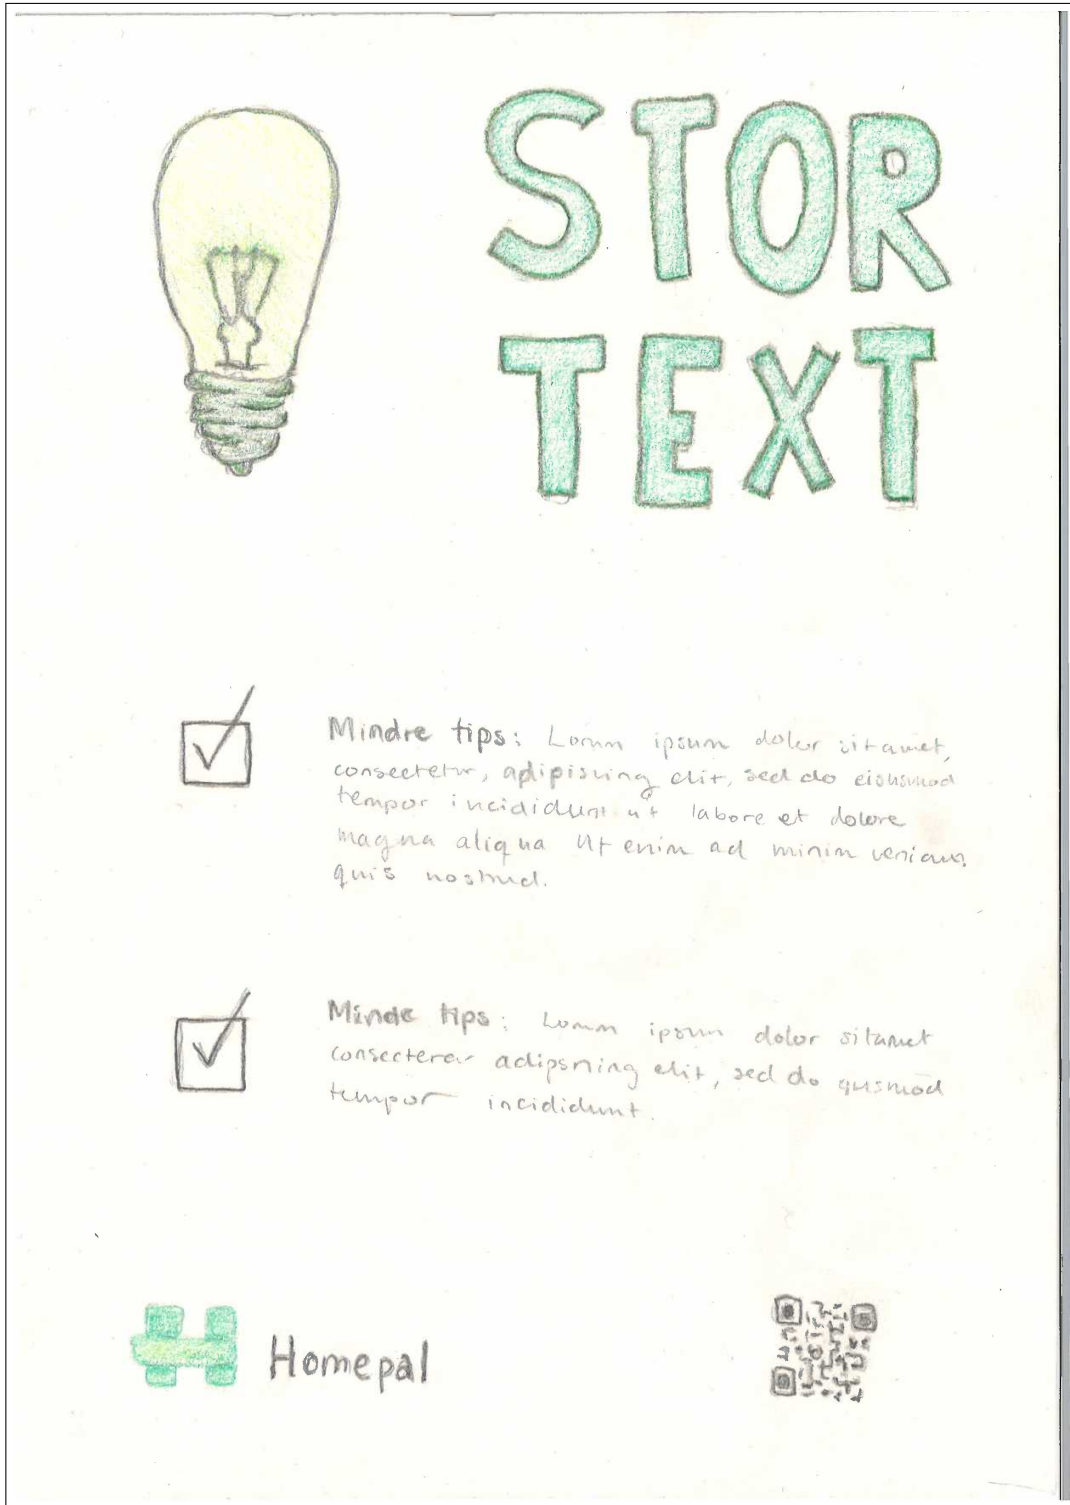 STOR
TEXT
Mindre tips: Lorum ipsum dolur sitamet,
consectetur, adipiscing elit, sed do eiusmod
tempor incididunt ut labore et dolore
magna aliqua Ut enim ad minim veniam,
quis nostrud.
Minde tips: Lorum ipsum dolor sitamet
consecterar adipsning elit, sed do qusmod
tempor incididunt.
Homepal